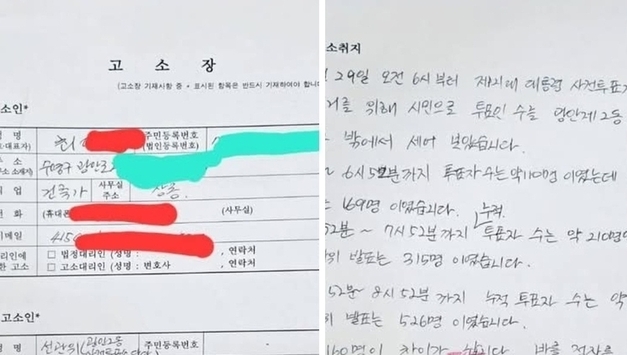 고 소 장
(고소장 기재사항 중 * 표시된 항목은 반드시 기재하여야 합니다
소인*
명
대표자)
주민등록번호
(법인등록번호)
소
수영구 광안로
업
건축가
사무실
주소
상동.
화
(휴대폰
(사무실)
이메일
415
리인에
한 고소
□ 법정대리인 (성명 :
, 연락처
□ 고소대리인 (성명 : 변호사
, 연락처
고소인*
선관위(
소취지
29일 오전 6시부터 제21대 대통령 사전투표가
위해 시민으로 투표인 수를 광안제2동
밖에서 세어 보았습니다.
6시52분까지 투표자 수는 약110명 이었는데
169명 이었습니다.
52분~ 7시52분까지 누적 투표자 수는 약 210명
발표는 315명 이었습니다.
52분~ 8시52분 까지 누적 투표자 수는 약
발표는 526명 이었습니다.
160명이 차이가